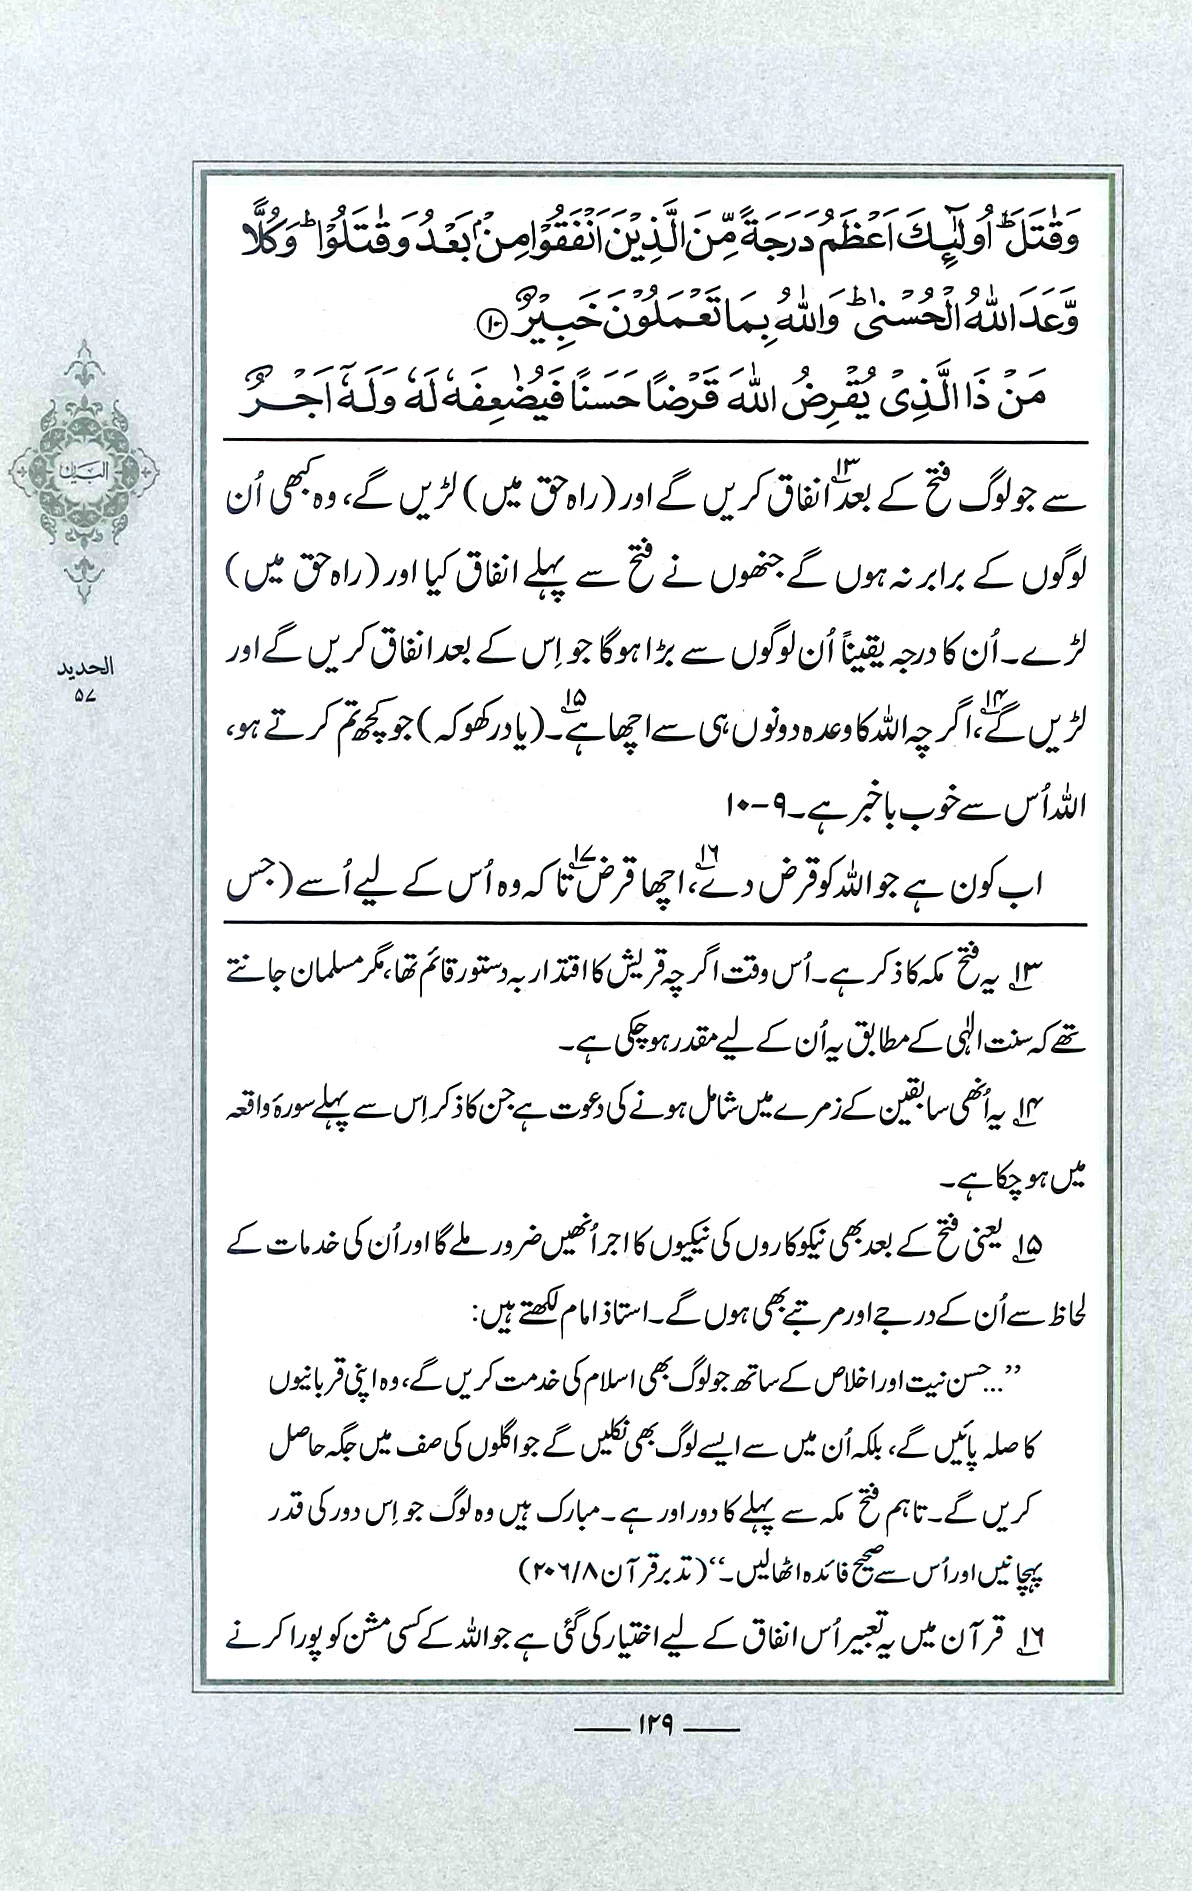 وَقٰتَلَ ؕ اُولٰٓئِكَ اَعْظَمُ دَرَجَةً مِّنَ الَّذِيْنَ اَنْفَقُوْا مِنْۢ بَعْدُ وَقٰتَلُوْا ؕ وَكُلًّا
وَّعَدَ اللّٰهُ الْحُسْنٰى ؕ وَاللّٰهُ بِمَا تَعْمَلُوْنَ خَبِيْرٌ ۝۱۰
مَنْ ذَا الَّذِىْ يُقْرِضُ اللّٰهَ قَرْضًا حَسَنًا فَيُضٰعِفَهٗ لَهٗ وَلَهٗۤ اَجْرٌ
سے جو لوگ فتح کے بعد۱۳ انفاق کریں گے اور (راہ حق میں) لڑیں گے، وہ کبھی اُن
لوگوں کے برابر نہ ہوں گے جنھوں نے فتح سے پہلے انفاق کیا اور (راہ حق میں)
لڑے۔ اُن کا درجہ یقیناً اُن لوگوں سے بڑا ہوگا جو اِس کے بعد انفاق کریں گے اور
لڑیں گے۱۴، اگرچہ اللہ کا وعدہ دونوں ہی سے اچھا ہے۱۵۔ (یاد رکھو کہ) جو کچھ تم کرتے ہو،
اللہ اُس سے خوب باخبر ہے۔ ۹-۱۰
اب کون ہے جو اللہ کو قرض دے۱۶، اچھا قرض۱۷ تاکہ وہ اُس کے لیے اُسے (جس
۱۳ یہ فتح مکہ کا ذکر ہے۔ اُس وقت اگرچہ قریش کا اقتدار بہ دستور قائم تھا، مگر مسلمان جانتے
تھے کہ سنت الٰہی کے مطابق یہ اُن کے لیے مقدر ہو چکی ہے۔
۱۴ یہ اُنھی سابقین کے زمرے میں شامل ہونے کی دعوت ہے جن کا ذکر اِس سے پہلے سورۂ واقعہ
میں ہو چکا ہے۔
۱۵ یعنی فتح کے بعد بھی نیکوکاروں کی نیکیوں کا اجر اُنھیں ضرور ملے گا اور اُن کی خدمات کے
لحاظ سے اُن کے درجے اور مرتبے بھی ہوں گے۔ استاذ امام لکھتے ہیں:
”...حسن نیت اور اخلاص کے ساتھ جو لوگ بھی اسلام کی خدمت کریں گے، وہ اپنی قربانیوں
کا صلہ پائیں گے، بلکہ اُن میں سے ایسے لوگ بھی نکلیں گے جو اگلوں کی صف میں جگہ حاصل
کریں گے۔ تاہم فتح مکہ سے پہلے کا دور اور ہے۔ مبارک ہیں وہ لوگ جو اِس دور کی قدر
پہچانیں اور اُس سے صحیح فائدہ اٹھالیں۔“ (تدبر قرآن ۸/ ۲۰۶)
۱۶ قرآن میں یہ تعبیر اُس انفاق کے لیے اختیار کی گئی ہے جو اللہ کے کسی مشن کو پورا کرنے
البیان
الحدید
۵۷
۱۲۹